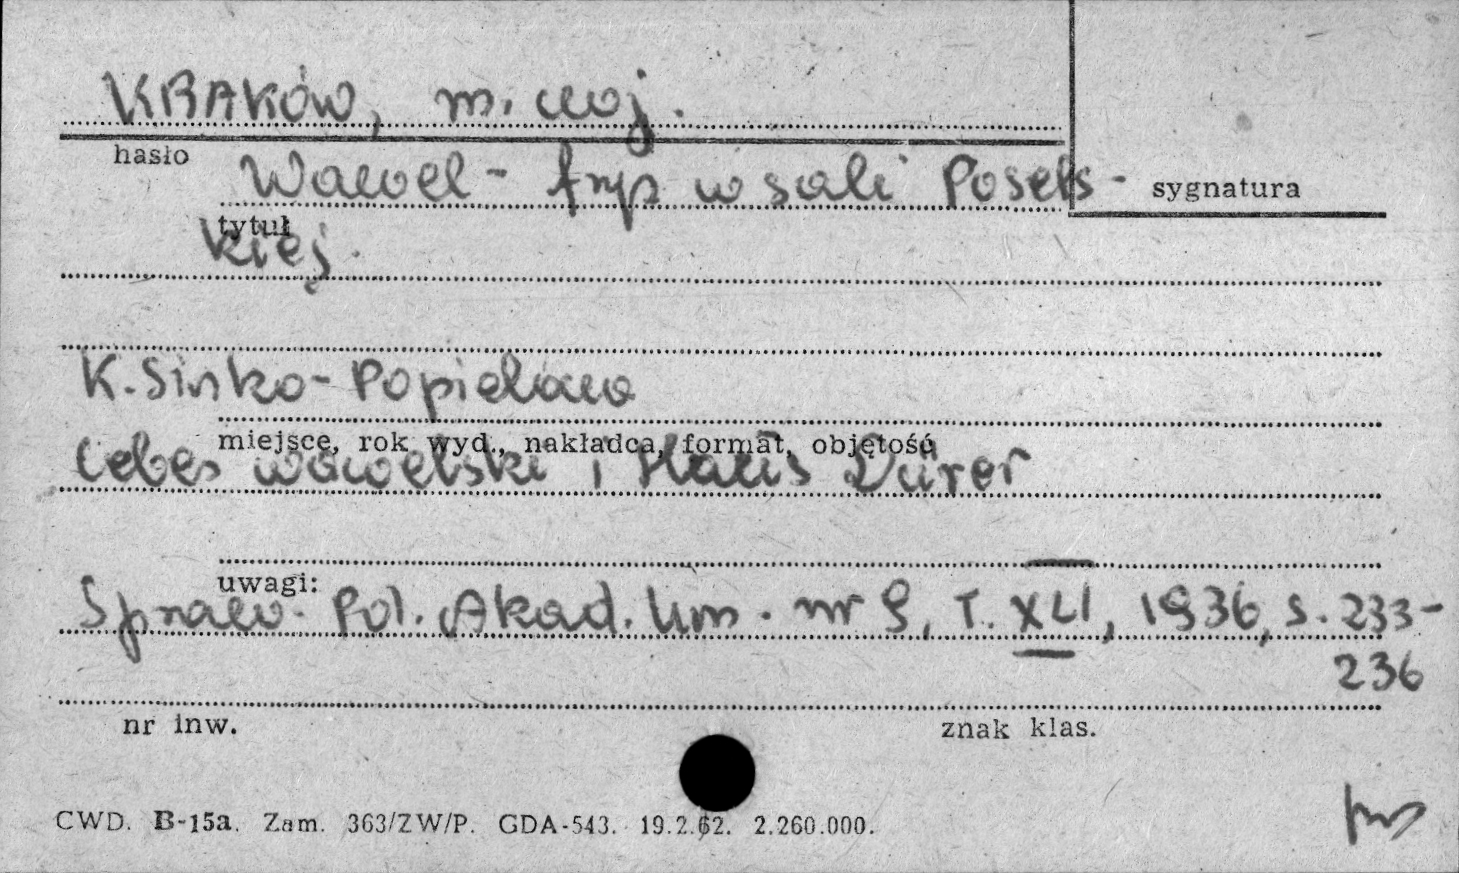 KRAKÓW, m. woj.
hasło
Wawel - fryz w sali Posels-
sygnatura
tytuł
kiej.
K. Sinko-Popielowa
miejsce, rok wyd., nakładca, format, objętość
Cebes wawelski i Hans Dürer
uwagi:
Spraw. Pol. Akad. Um. nr 9, T. XLI, 1936, s. 233-
236
nr inw.
znak klas.
CWD. B-15a. Zam. 363/ZW/P. GDA-543. 19.2.62. 2.260.000.